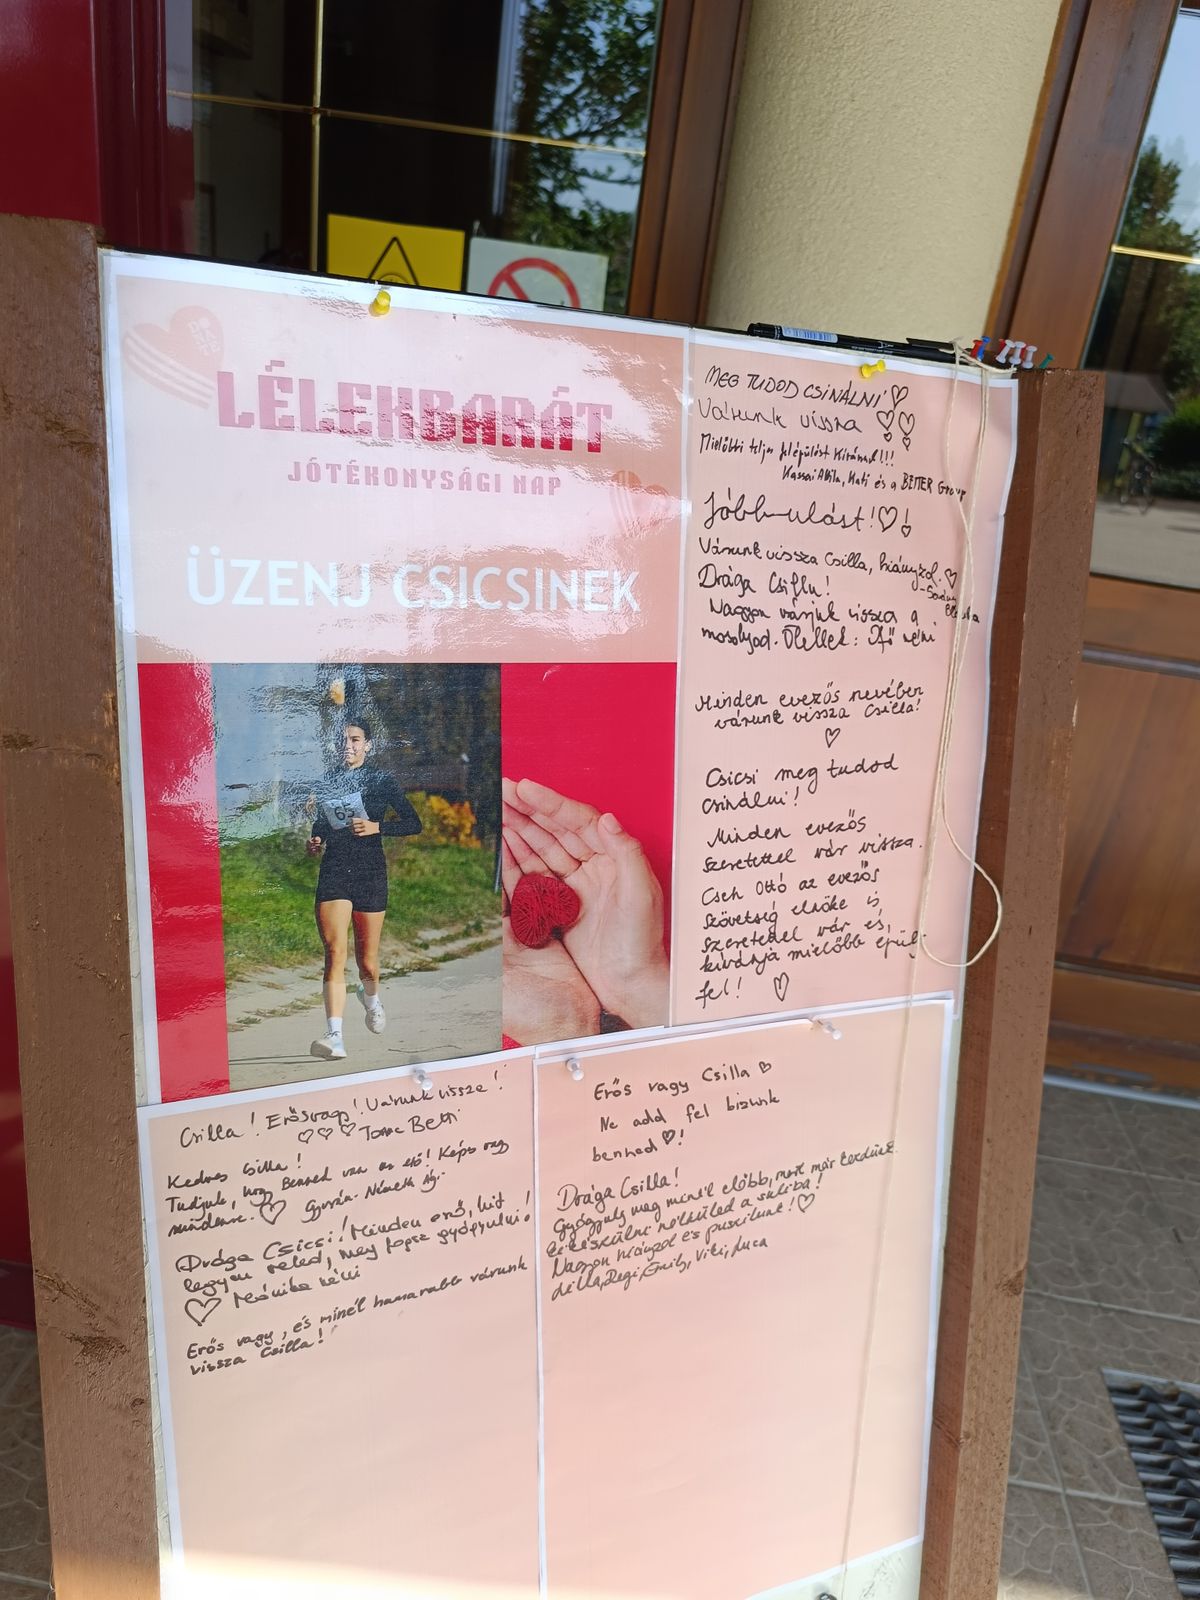 LÉLEKBARÁT
JÓTÉKONYSÁGI NAP
ÜZENJ CSICSINEK
65
MEG TUDOD CSINÁLNI
Várunk vissza
Mielőbbi teljes felépülést Kívánok!!!
Kassai Attila, Kati és a BETTER Group
Jobbulást!
Várunk vissza Csilla, hiányzol.
Drága Csilla!
Nagyon várjuk vissza a
mosolyod. Ölellek: néni
Minden evezős nevében
várunk vissza Csilla!
Csicsi meg tudod
csinálni!
Minden evezős
szeretettel vár vissza.
Cseh Ottó az evezős
szövetség elnöke is
szeretettel vár és,
kívánja mielőbb épülj
fel!
Csilla! Erős vagy! Várunk vissza!
Betti
Kedves Csilla!
Tudjuk, hogy Benned van az erő! Képes vagy
mindenre. Németh Ági
Drága Csicsi! Minden erő, hit
legyen veled, meg fogsz gyógyulni!
Mónika néni
Erős vagy, és minél hamarabb várunk
vissza Csilla!
Erős vagy Csilla
Ne add fel bízunk
benned!
Drága Csilla!
Gyógyulj meg minél előbb, mert már kezdünk
nélküled a suliba!
Nagyon hiányzol és puszilunk!
Lilla, Regi, Emily, Viki, Luca